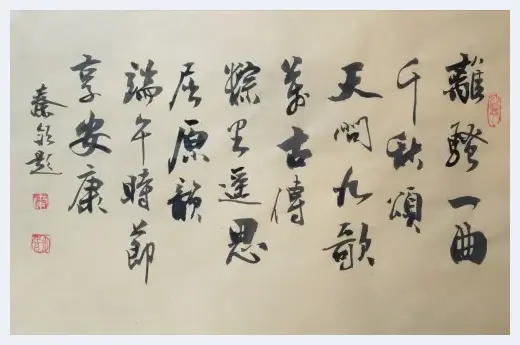 離騷一曲
千秋頌
天問九歌
萬古傳
粽里遥思
屈原韻
端午時節
享安康
秦
題